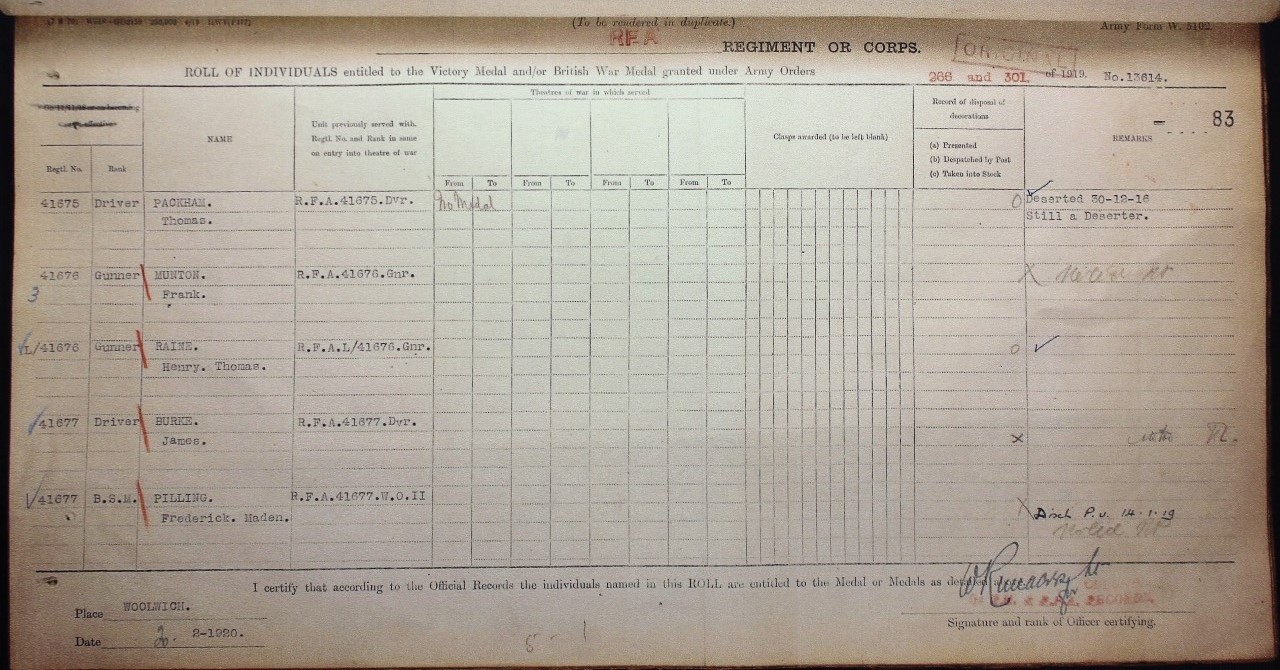 (To be rendered in duplicate.)
Army Form W. 5102.
RFA REGIMENT OR CORPS.
ORIGINAL
ROLL OF INDIVIDUALS entitled to the Victory Medal and/or British War Medal granted under Army Orders 266 and 301. of 1919. No.13614.
83
Regtl. No. Rank NAME Unit previously served with. Regtl. No. and Rank in same on entry into theatre of war Theatres of war in which served Clasps awarded (to be left blank) Record of disposal of decorations REMARKS
(a) Presented
(b) Despatched by Post
(c) Taken into Stock
From To From To From To From To
41675 Driver PACKHAM. R.F.A.41675.Dvr. No Medal Deserted 30-12-16
Thomas. Still a Deserter.
41676 Gunner MUNTON. R.F.A.41676.Gnr. X
3 Frank.
L/41676 Gunner RAINE. R.F.A.L/41676.Gnr. ✓
Henry. Thomas.
41677 Driver BURKE. R.F.A.41677.Dvr.
James. X
41677 B.S.M. PILLING. R.F.A.41677.W.O.II
Frederick. Maden. X Disch P.U. 14.1.19
I certify that according to the Official Records the individuals named in this ROLL are entitled to the Medal or Medals as detailed
Place WOOLWICH.
R.F.A. RECORDS.
Date 2. 2-1920.
Signature and rank of Officer certifying.